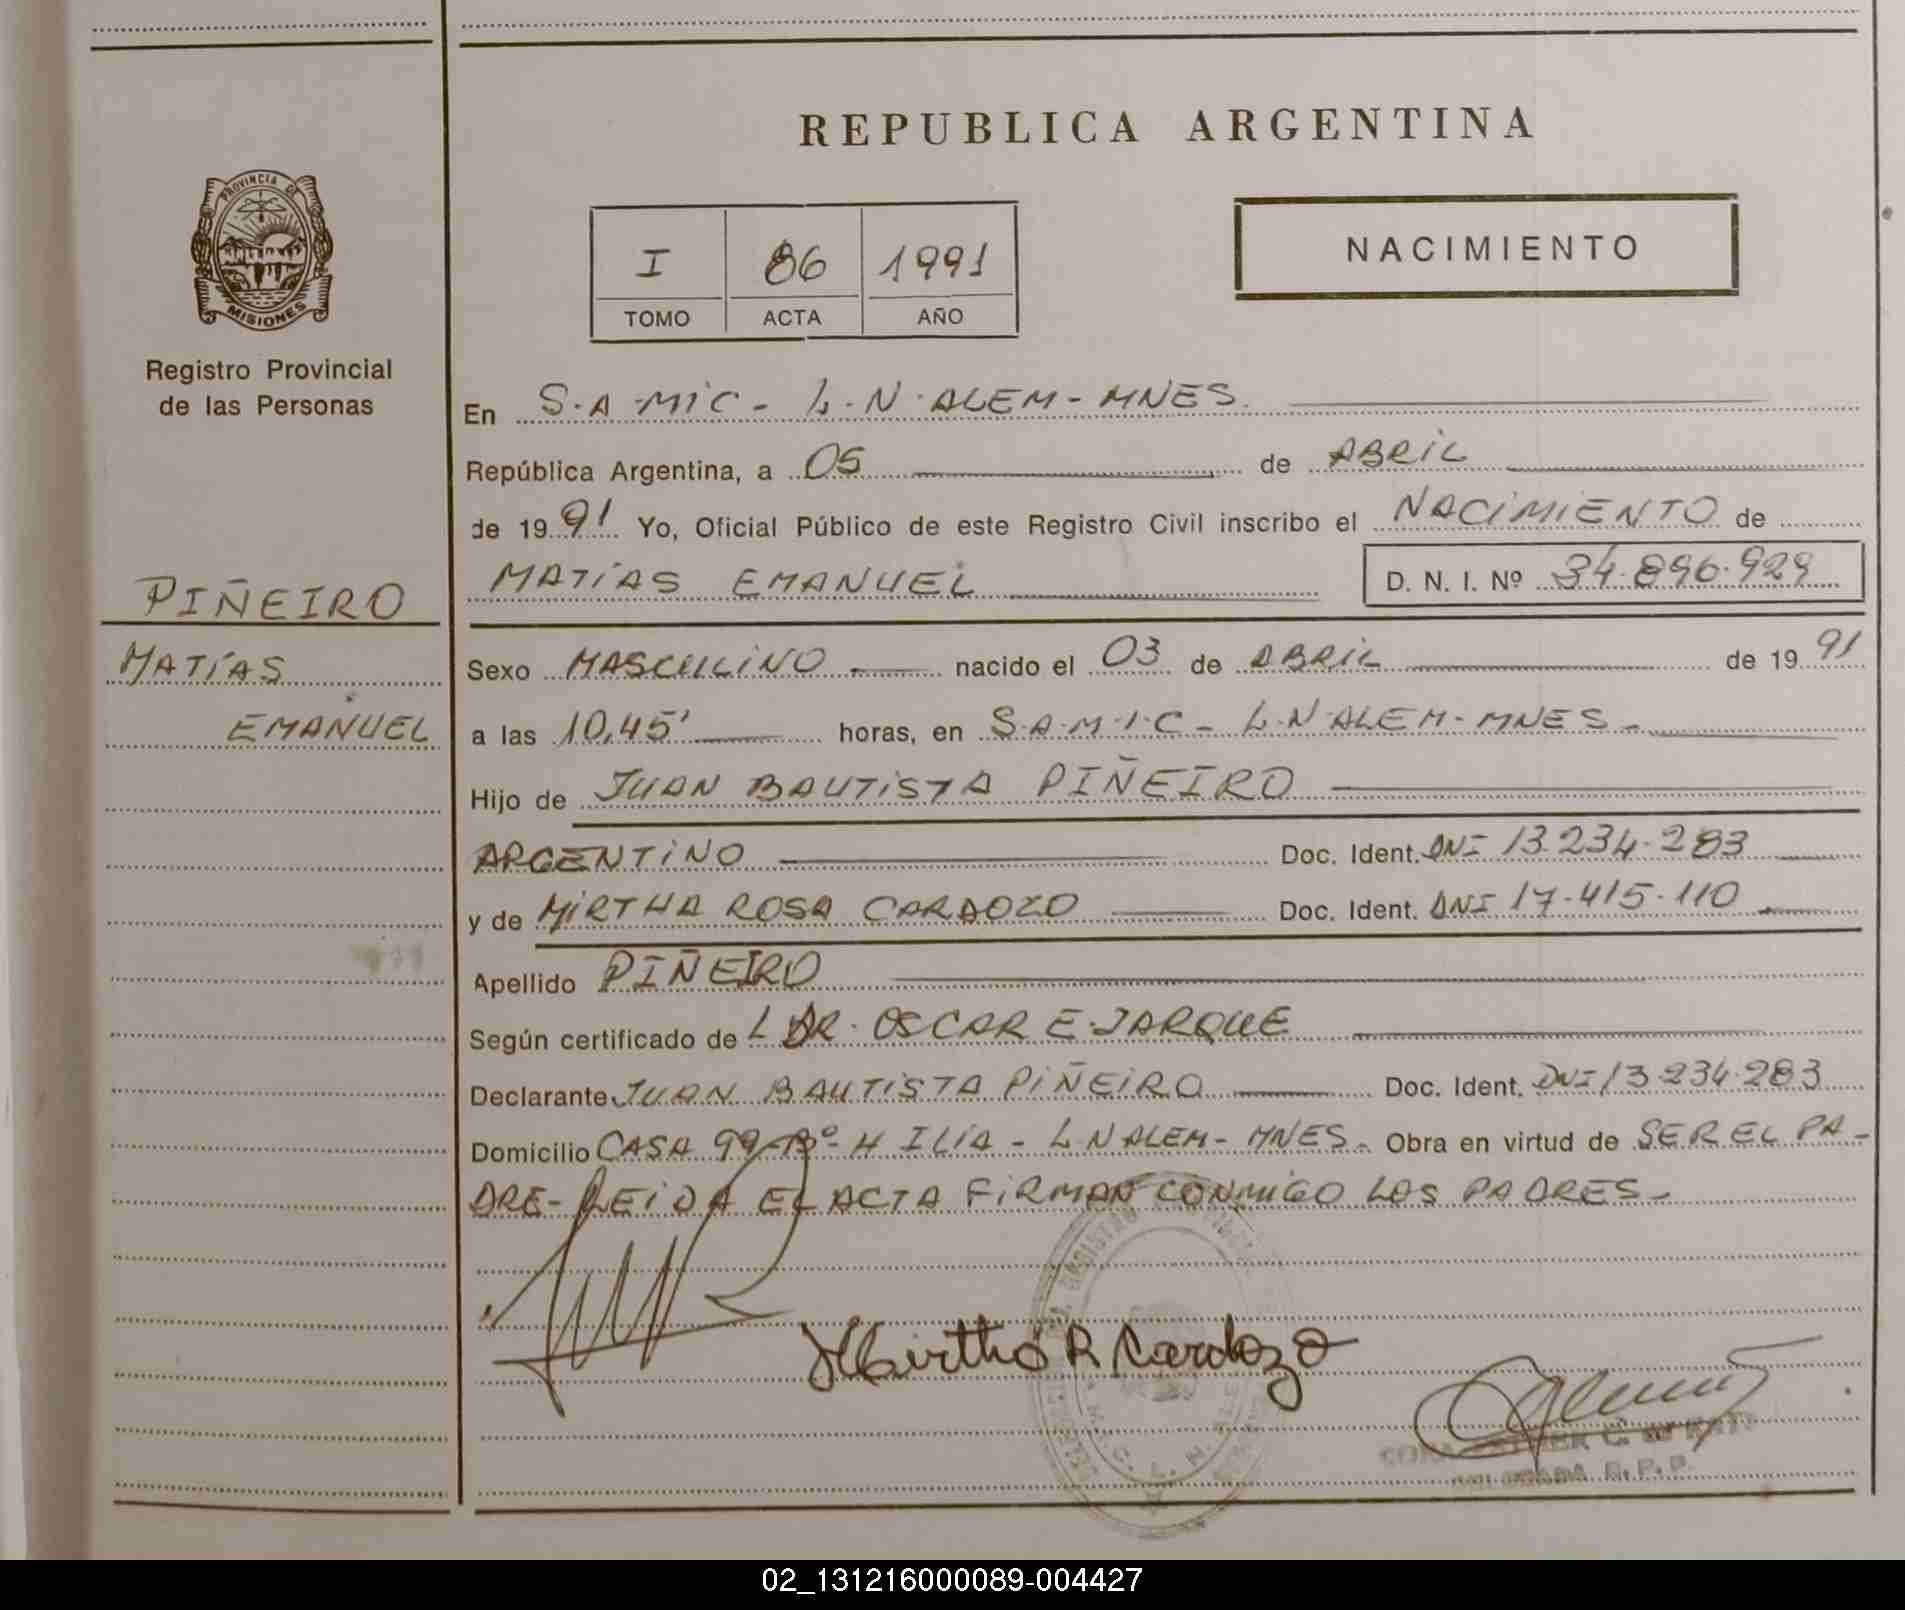 REPUBLICA ARGENTINA
PROVINCIA DE
MISIONES
Registro Provincial
de las Personas
I 86 1991
TOMO ACTA AÑO
NACIMIENTO
En S.A.MIC - L.N.ALEM - MNES.
República Argentina, a 05 de ABRIL
de 1991 Yo, Oficial Público de este Registro Civil inscribo el NACIMIENTO de
MATÍAS EMANUEL D. N. I. Nº 34.896.929
PIÑEIRO
MATÍAS
EMANUEL
Sexo MASCULINO nacido el 03 de ABRIL de 1991
a las 10,45' horas, en S.A.M.I.C - L.N.ALEM - MNES -
Hijo de JUAN BAUTISTA PIÑEIRO
ARGENTINO Doc. Ident. DNI 13.234.283
y de MIRTHA ROSA CARDOZO Doc. Ident. DNI 17.415.110
Apellido PIÑEIRO
Según certificado de L DR. OSCAR E. JARQUE
Declarante JUAN BAUTISTA PIÑEIRO Doc. Ident. DNI 13.234.283
Domicilio CASA 99 - Bº - H ILIA - L.N ALEM - MNES - Obra en virtud de SER EL PA-
DRE - LEIDA EL ACTA FIRMAN CONMIGO LOS PADRES -
Mirtha R Cardozo
R. P. P.
02_131216000089-004427